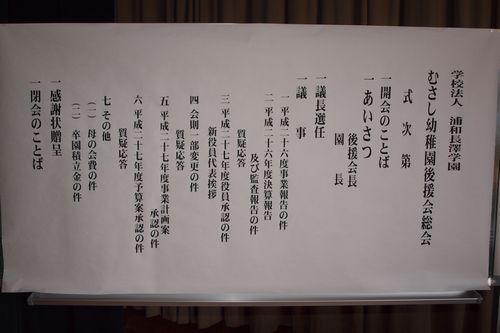 学校法人 浦和長澤学園
むさし幼稚園後援会総会
式次第
一開会のことば
一あいさつ
後援会長
園長
一議長選任
一議事
一 平成二十六年度事業報告の件
二 平成二十六年度決算報告
及び監査報告の件
質疑応答
三 平成二十七年度役員承認の件
新役員代表挨拶
四 会則一部変更の件
質疑応答
五 平成二十七年度事業計画案
承認の件
質疑応答
六 平成二十七年度予算案承認の件
質疑応答
七 その他
(一) 母の会費の件
(二) 卒園積立金の件
一感謝状贈呈
一閉会のことば